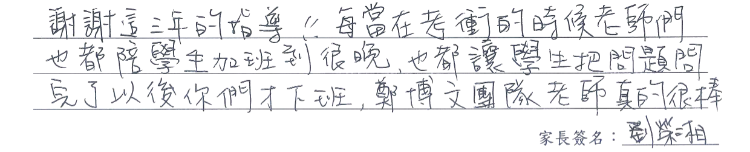 謝謝這三年的指導!! 每當在考衝的時候老師們
也都陪學生加班到很晚,也都讓學生把問題問
完了以後你們才下班,鄭博文團隊老師真的很棒
家長簽名:劉榮相